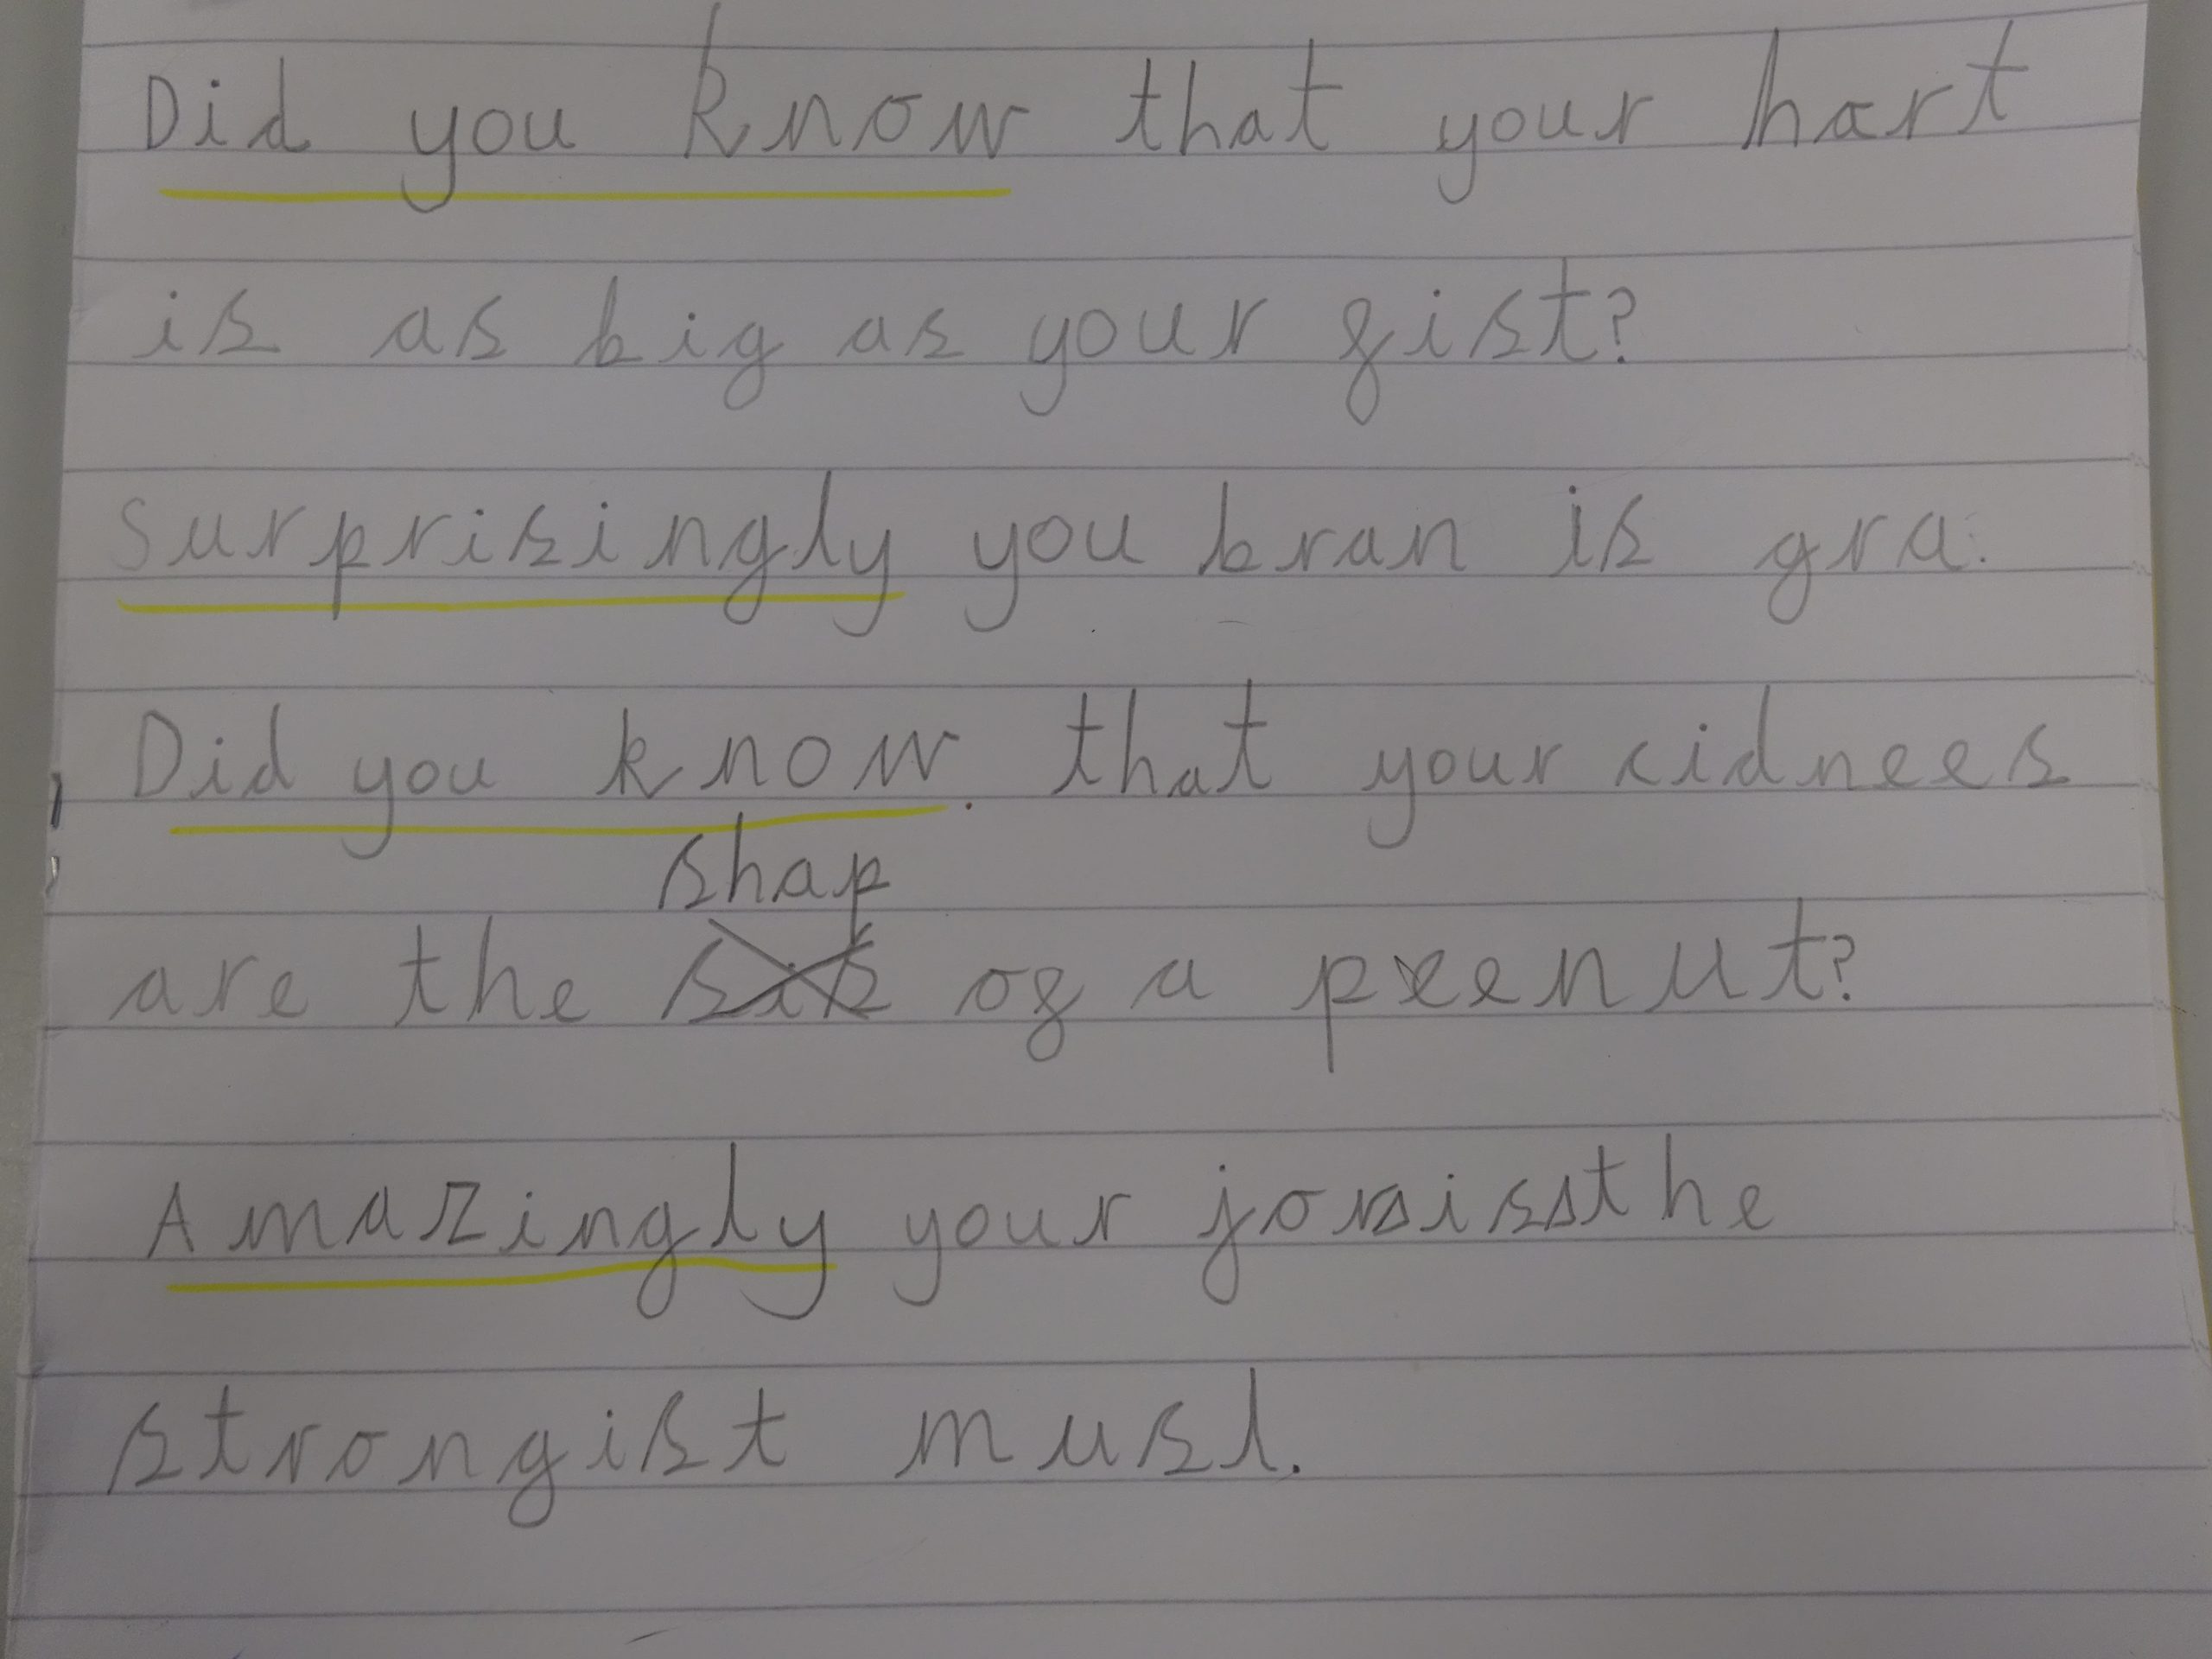 Did you know that your hart
is as big as your fist?
Surprisingly you bran is gra.
Did you know. that your cidnees
shap
are the sis of a peenut?
Amazingly your jors is the
strongist musl.